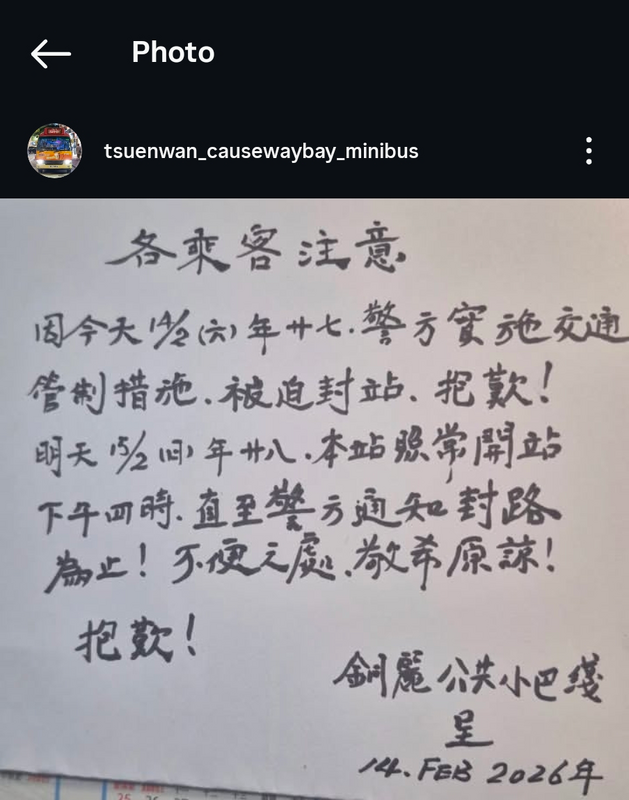 Photo
tsuenwan_causewaybay_minibus
各乘客注意
因今天14/2(六)年廿七.警方實施交通
管制措施.被迫封站.抱歉!
明天15/2(日)年廿八.本站照常開站
下午四時.直至警方通知封路
為止!不便之處.敬希原諒!
抱歉!
銅麗公共小巴綫
呈
14.FEB 2026年
25 26